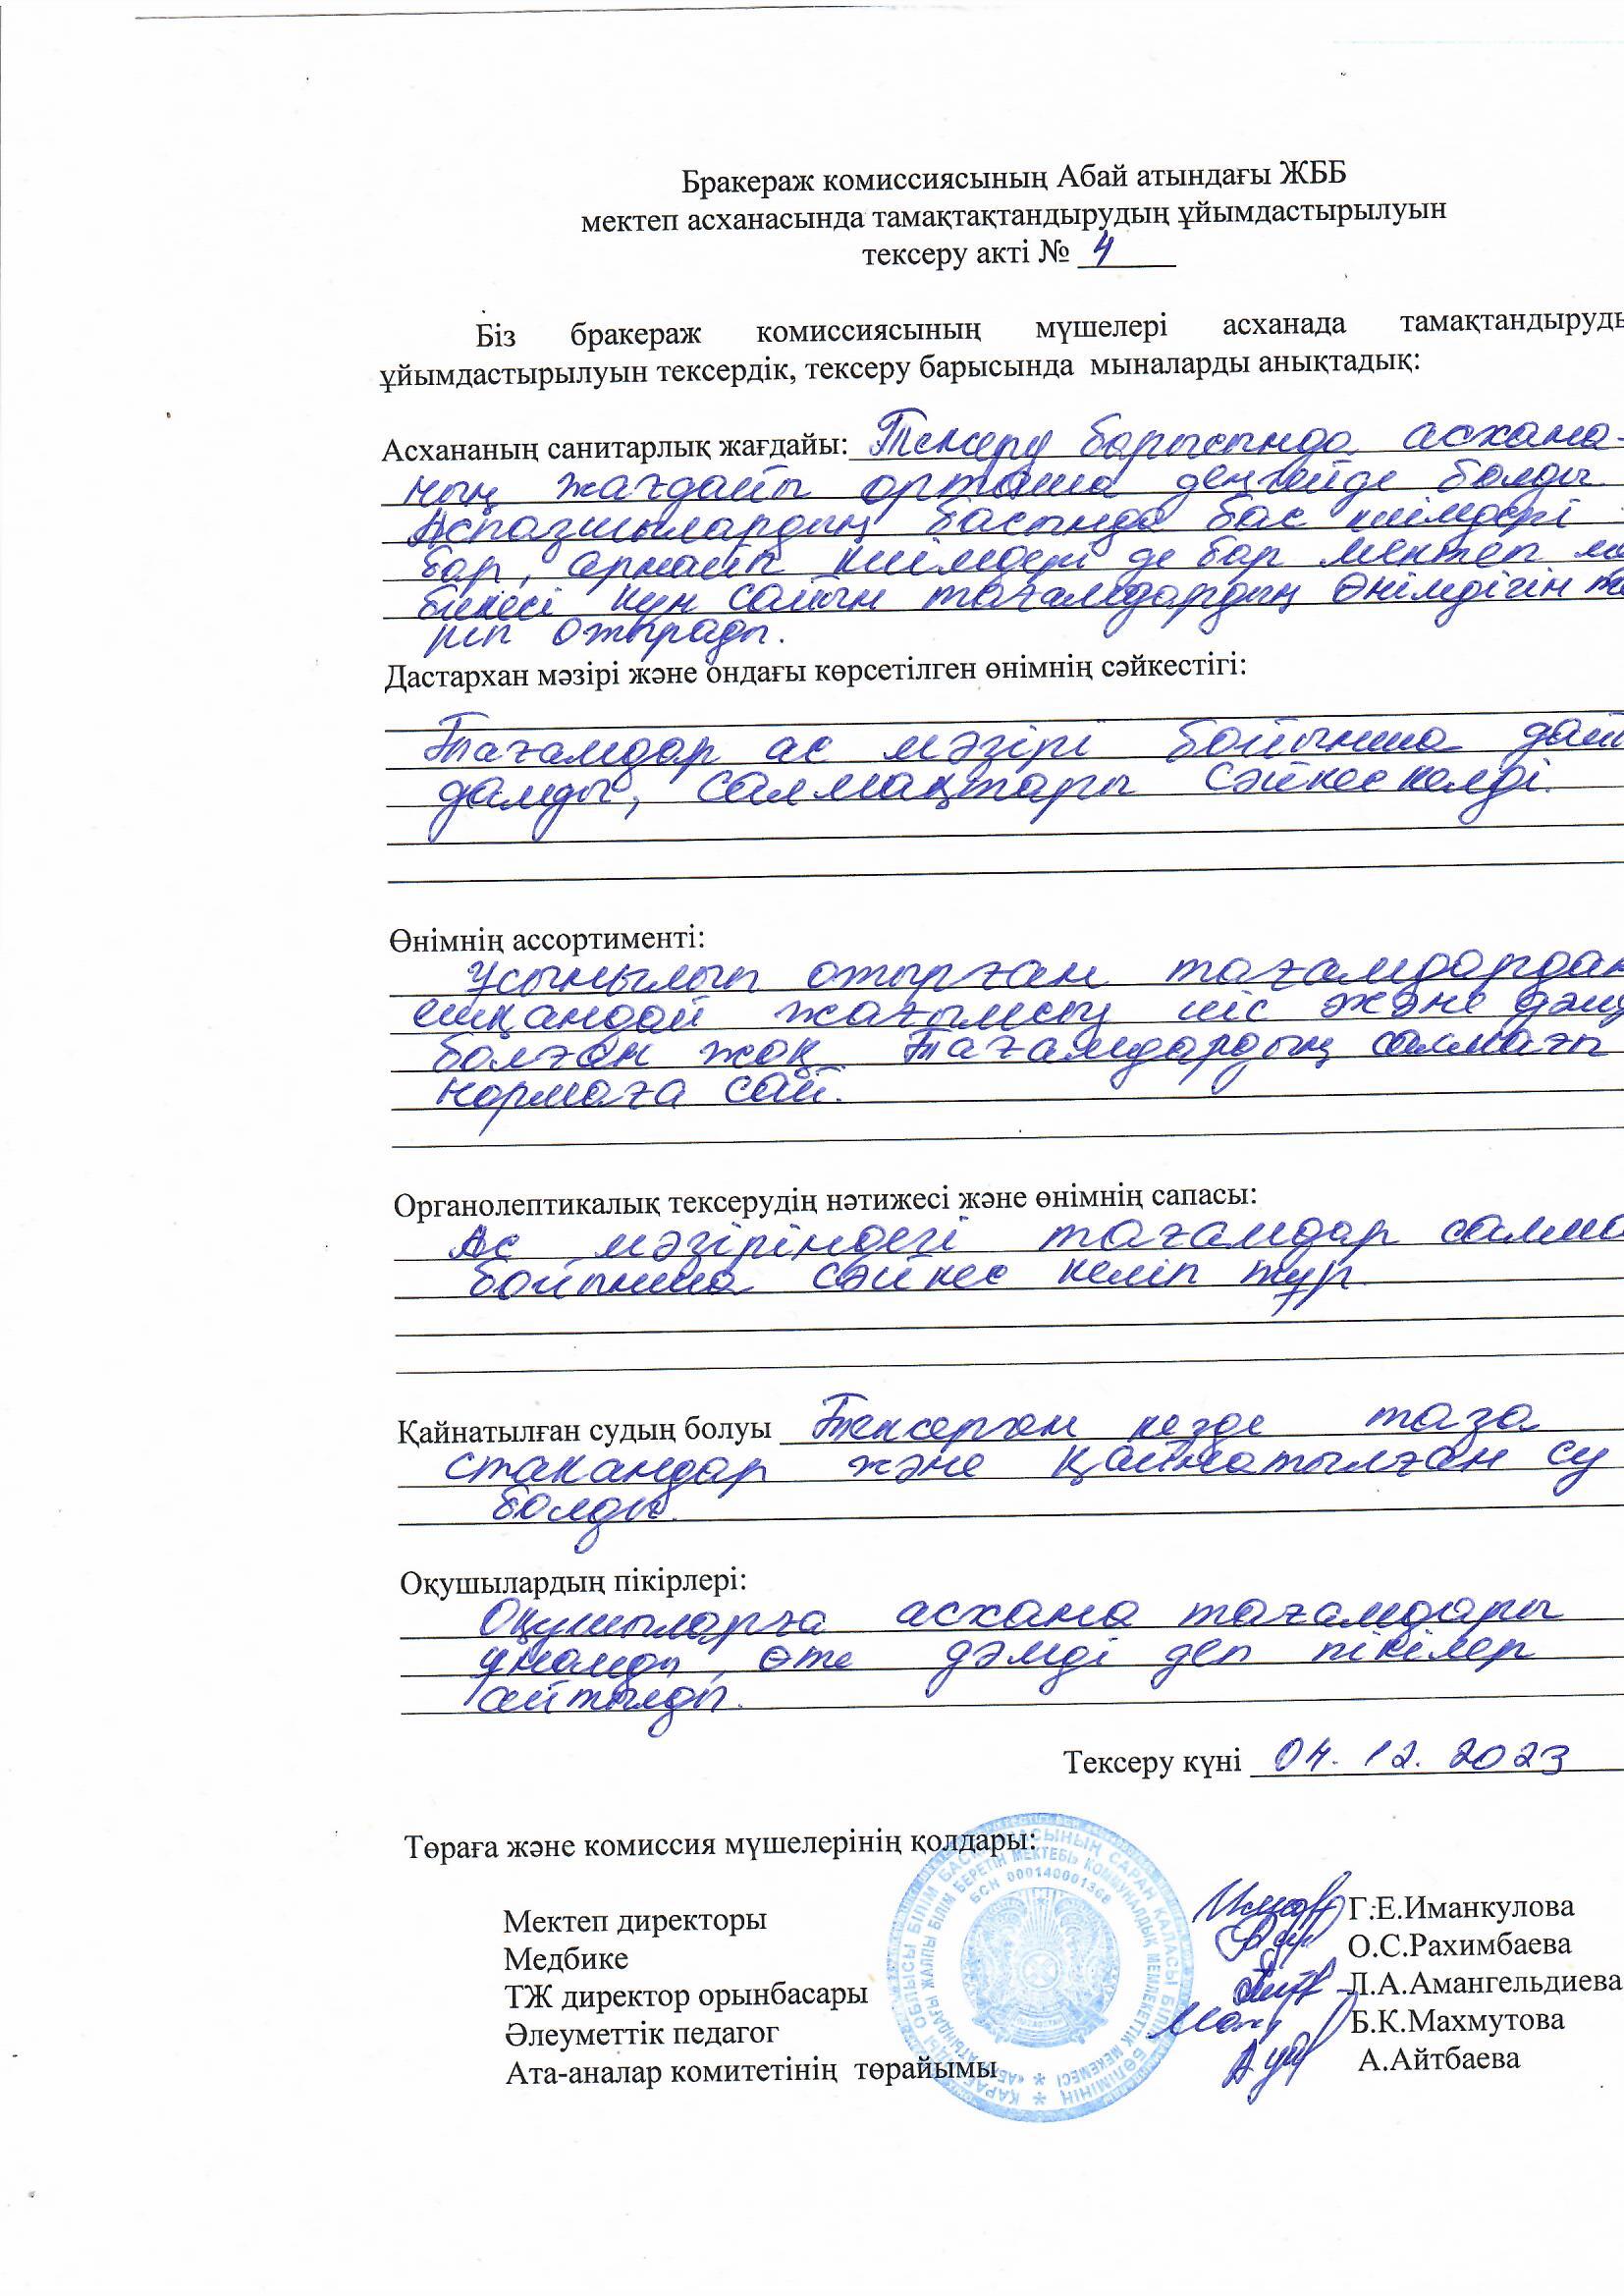 Бракераж комиссиясының Абай атындағы ЖББ
мектеп асханасында тамақтақтандырудың ұйымдастырылуын
тексеру акті № 4
Біз бракераж комиссиясының мүшелері асханада тамақтандыруды
ұйымдастырылуын тексердік, тексеру барысында мыналарды анықтадық:
Асхананың санитарлық жағдайы: Тексеру барысында асхана-
ның жағдайы орташа деңгейде болды.
Аспазшылардың басында бас киімдері
бар, арнайы киімдері де бар мектеп
бикесі күн сайын тағамдардың өнімдігін
ріп отырады.
Дастархан мәзірі және ондағы көрсетілген өнімнің сәйкестігі:
Тағамдар ас мәзірі бойынша дай
далды, салмақтары сәйкес келді.
Өнімнің ассортименті:
Ұсынылып отырған тағамдардан
ешқандай жағымсыз иіс және дәмд
болған жоқ Тағамдардың салмағы
нормаға сай.
Органолептикалық тексерудің нәтижесі және өнімнің сапасы:
Ас мәзіріндегі тағамдар салма
бойынша сәйкес келіп тұр.
Қайнатылған судың болуы Тексерген кезде таза
стакандар және қайнатылған су
болды.
Оқушылардың пікірлері:
Оқушыларға асхана тағамдары
ұнамды, өте дәмді деп пікілер
айтылды.
Тексеру күні 04. 12. 2023
Төраға және комиссия мүшелерінің қолдары:
Мектеп директоры Г.Е.Иманкулова
Медбике О.С.Рахимбаева
ТЖ директор орынбасары Л.А.Амангельдиева
Әлеуметтік педагог Б.К.Махмутова
Ата-аналар комитетінің төрайымы А.Айтбаева
БСН 000140001368